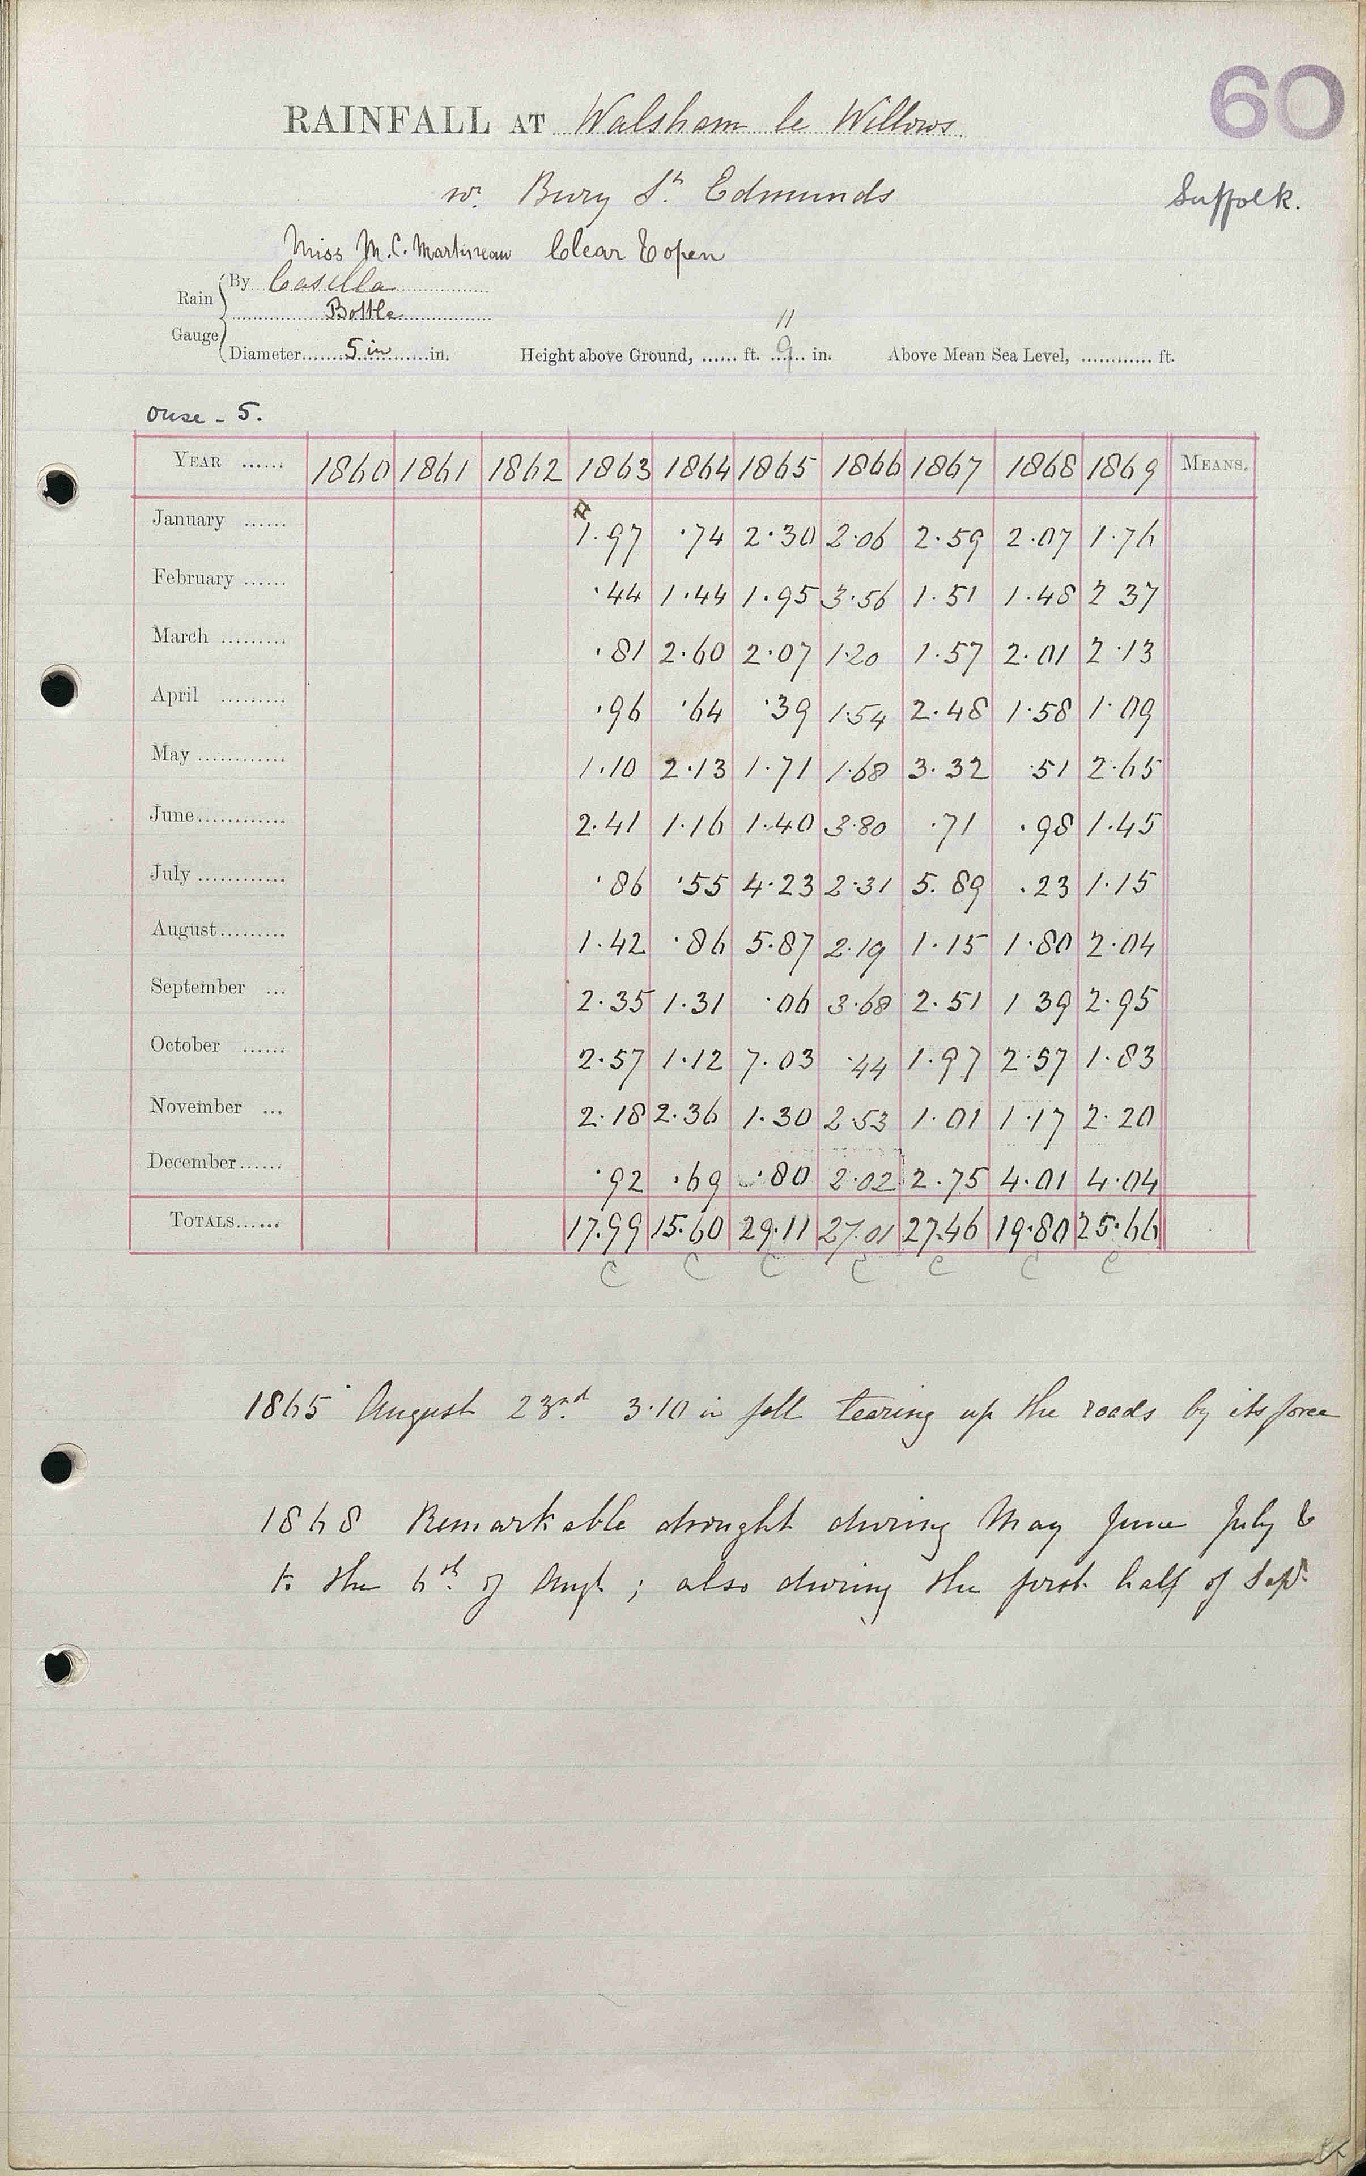 60
RAINFALL AT Walsham le Willows
nr. Bury St. Edmunds
Suffolk.
Miss M.C. Martineau Clear & open
Rain Gauge
By Casella
Bottle
Diameter 5 in in. Height above Ground, ...... ft. 9 in. Above Mean Sea Level, ............ ft.
11
Ouse - 5.
YEAR ...... 1860 1861 1862 1863 1864 1865 1866 1867 1868 1869 MEANS.
January ...... 1.97 .74 2.30 2.06 2.59 2.07 1.76
February ...... .44 1.44 1.95 3.56 1.51 1.48 2 37
March ......... .81 2.60 2.07 1.20 1.57 2.01 2.13
April ......... .96 .64 .39 1.54 2.48 1.58 1.09
May ............ 1.10 2.13 1.71 1.68 3.32 .51 2.65
June............ 2.41 1.16 1.40 3.80 .71 .98 1.45
July ............ .86 .55 4.23 2.31 5.89 .23 1.15
August......... 1.42 .86 5.87 2.19 1.15 1.80 2.04
September ... 2.35 1.31 .06 3.68 2.51 1 39 2.95
October ...... 2.57 1.12 7.03 .44 1.97 2.57 1.83
November ... 2.18 2.36 1.30 2.53 1.01 1.17 2.20
December...... .92 .69 .80 2.02 2.75 4.01 4.04
TOTALS...... 17.99 15.60 29.11 27.01 27.46 19.80 25.66
C C C C C C C
1865 August 23rd. 3.10 in fell tearing up the roads by its force
1868 Remarkable drought during May June July &
to the 6th. of Augt ; also during the first half of Sept.